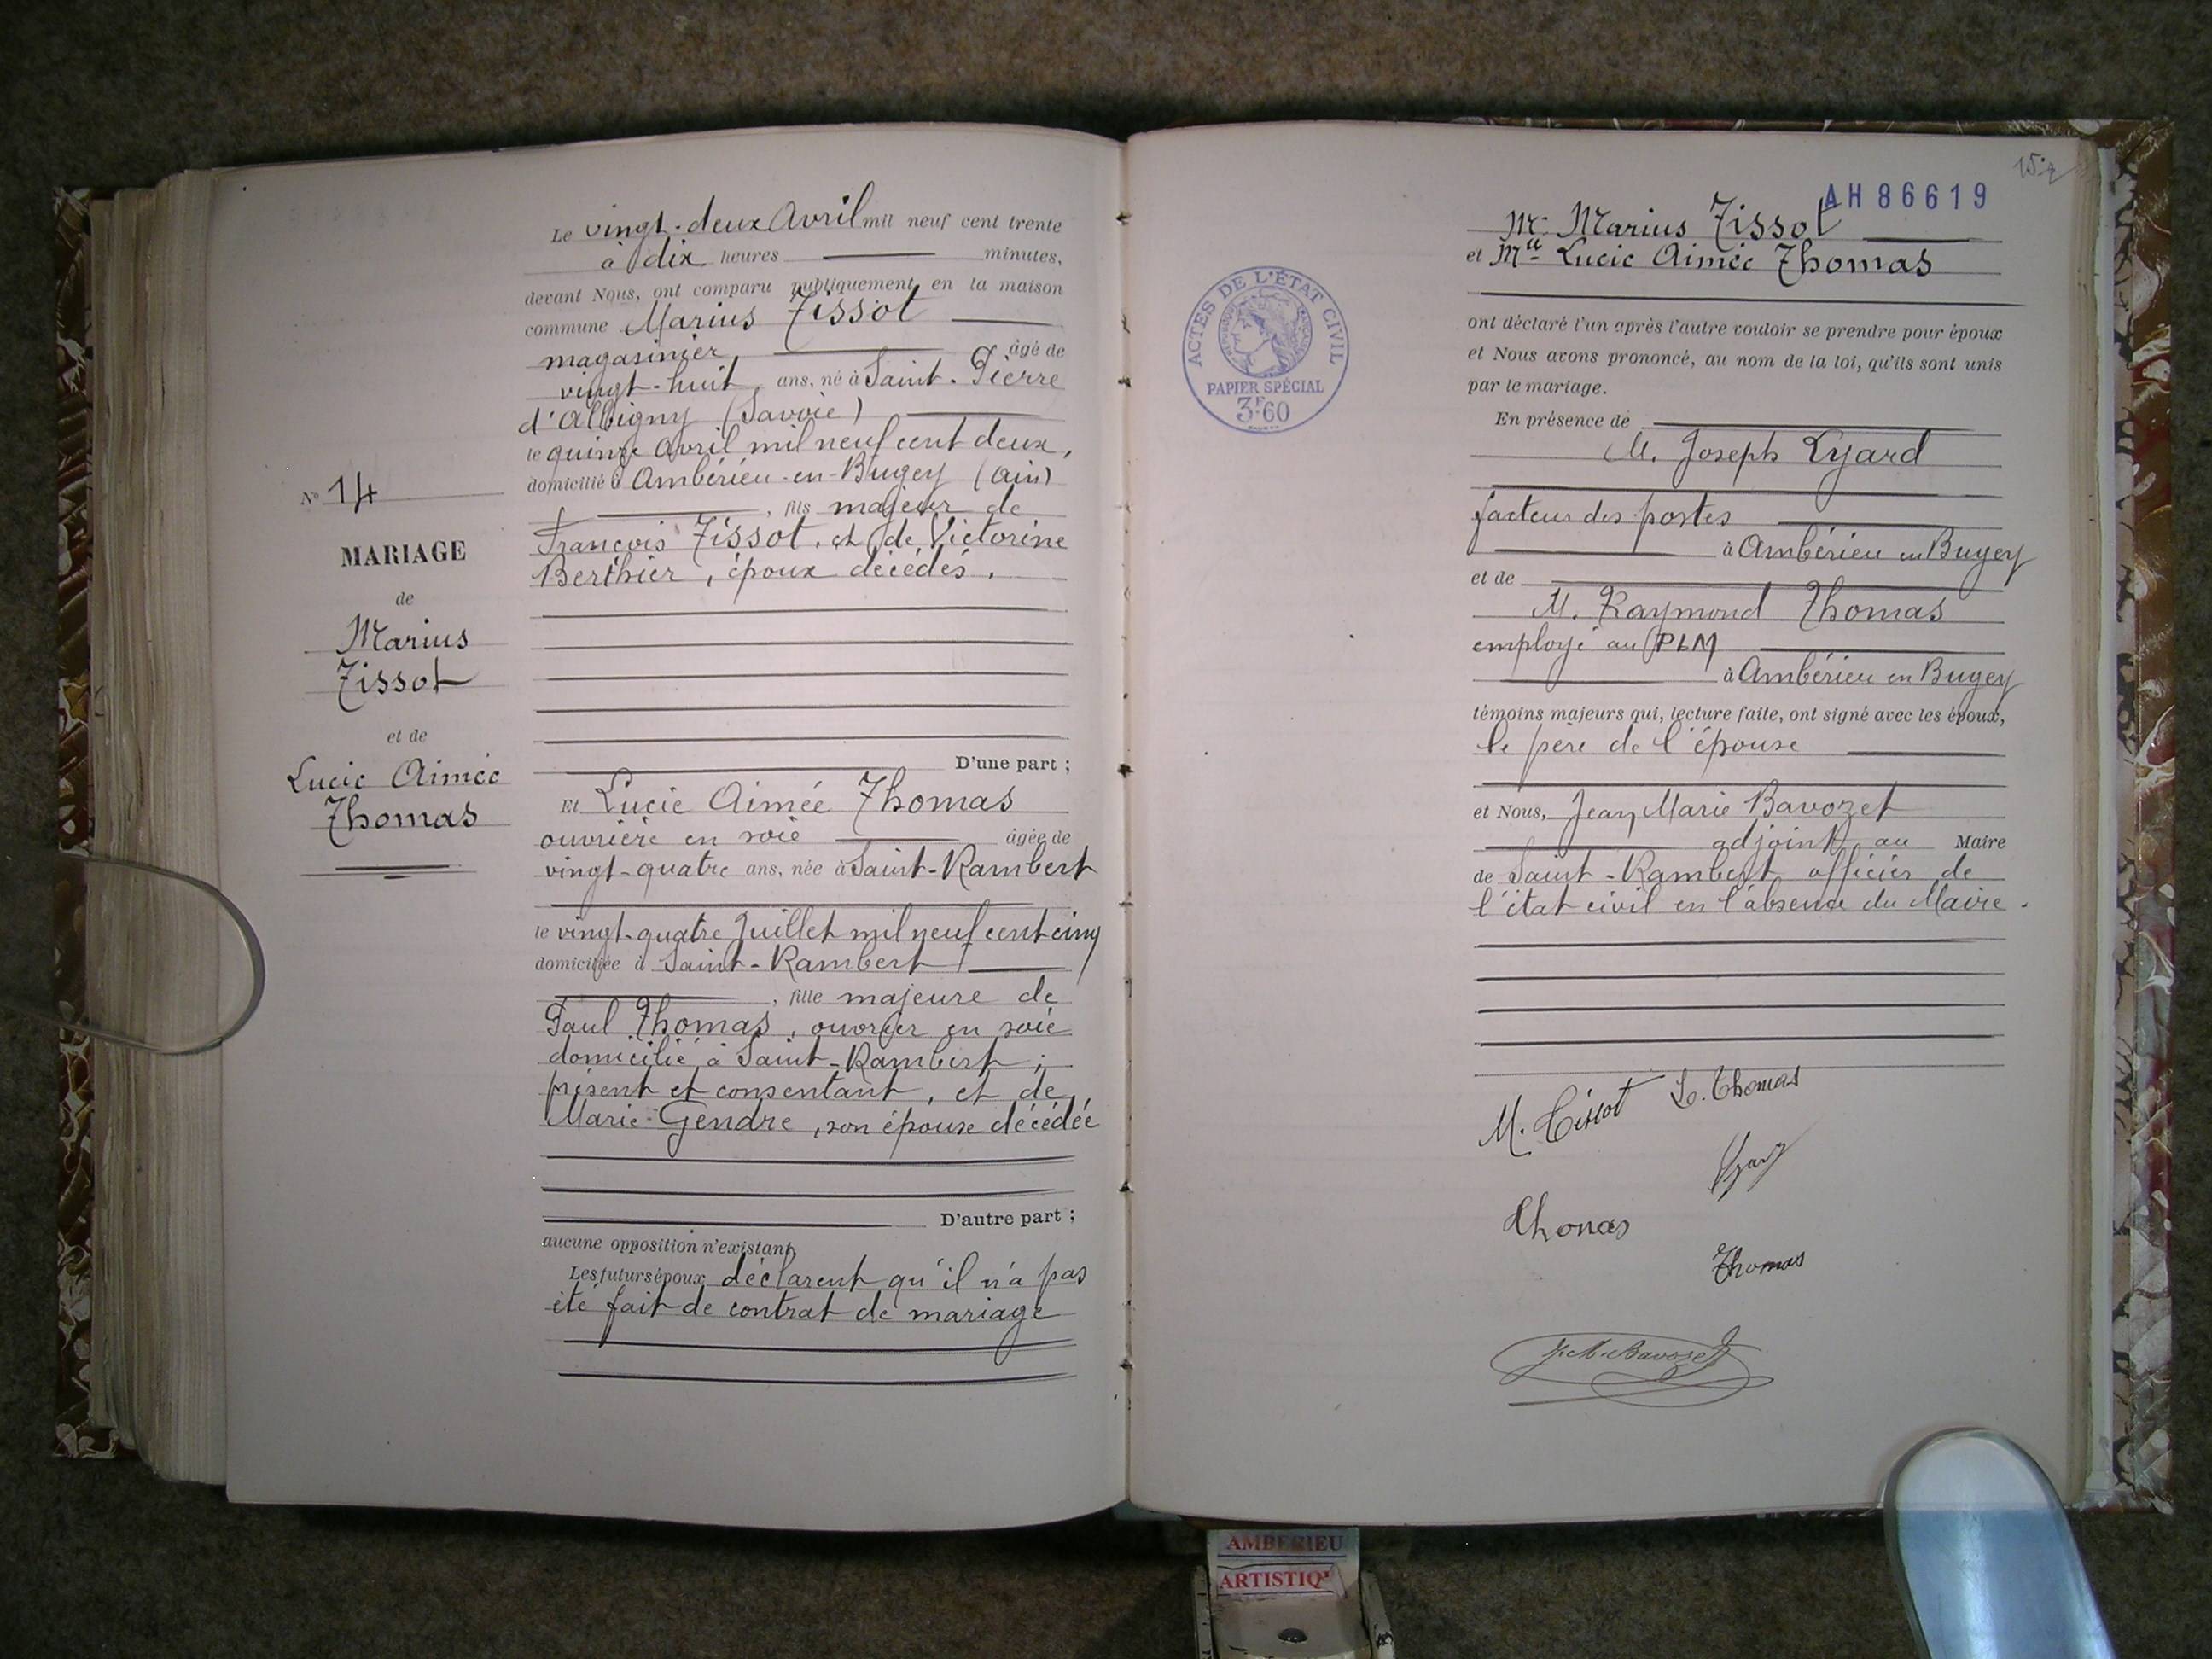 Le vingt-deux Avril mil neuf cent trente
à dix heures minutes,
devant Nous, ont comparu publiquement en la maison
commune Marius Tissot
magasinier, âgé de
vingt-huit ans, né à Saint-Pierre
d'Albigny (Savoie)
le quinze Avril mil neuf cent deux,
domicilié à Ambérieu-en-Bugey (Ain)
, fils majeur de
François Tissot, et de Victorine
Berthier, époux décédés.
D'une part ;
Et Lucie Aimée Thomas
ouvrière en soie âgée de
vingt-quatre ans, née à Saint-Rambert
le vingt-quatre Juillet mil neuf cent cinq
domiciliée à Saint-Rambert
, fille majeure de
Paul Thomas, ouvrier en soie
domicilié à Saint-Rambert ;
présent et consentant, et de
Marie Gendre, son épouse décédée
D'autre part ;
aucune opposition n'existant,
Les futurs époux déclarent qu'il n'a pas
été fait de contrat de mariage
No 14
MARIAGE
de
Marius
Tissot
et de
Lucie Aimée
Thomas
AH 86619
Mr Marius Tissot
et Mlle Lucie Aimée Thomas
ACTES DE L'ÉTAT CIVIL
RÉPUBLIQUE FRANÇAISE
PAPIER SPÉCIAL
3F60
ont déclaré l'un après l'autre vouloir se prendre pour époux
et Nous avons prononcé, au nom de la loi, qu'ils sont unis
par le mariage.
En présence de
M. Joseph Lyard
facteur des postes
à Ambérieu en Bugey
et de
M. Raymond Thomas
employé au PLM
à Ambérieu en Bugey
témoins majeurs qui, lecture faite, ont signé avec les époux,
le père de l'épouse
et Nous, Jean Marie Bavozet
adjoint au Maire
de Saint-Rambert officier de
l'état civil en l'absence du Maire.
M. Tissot L. Thomas
Lyard
Thomas
Thomas
J. M. Bavozet
AMBERIEU
ARTISTIQ